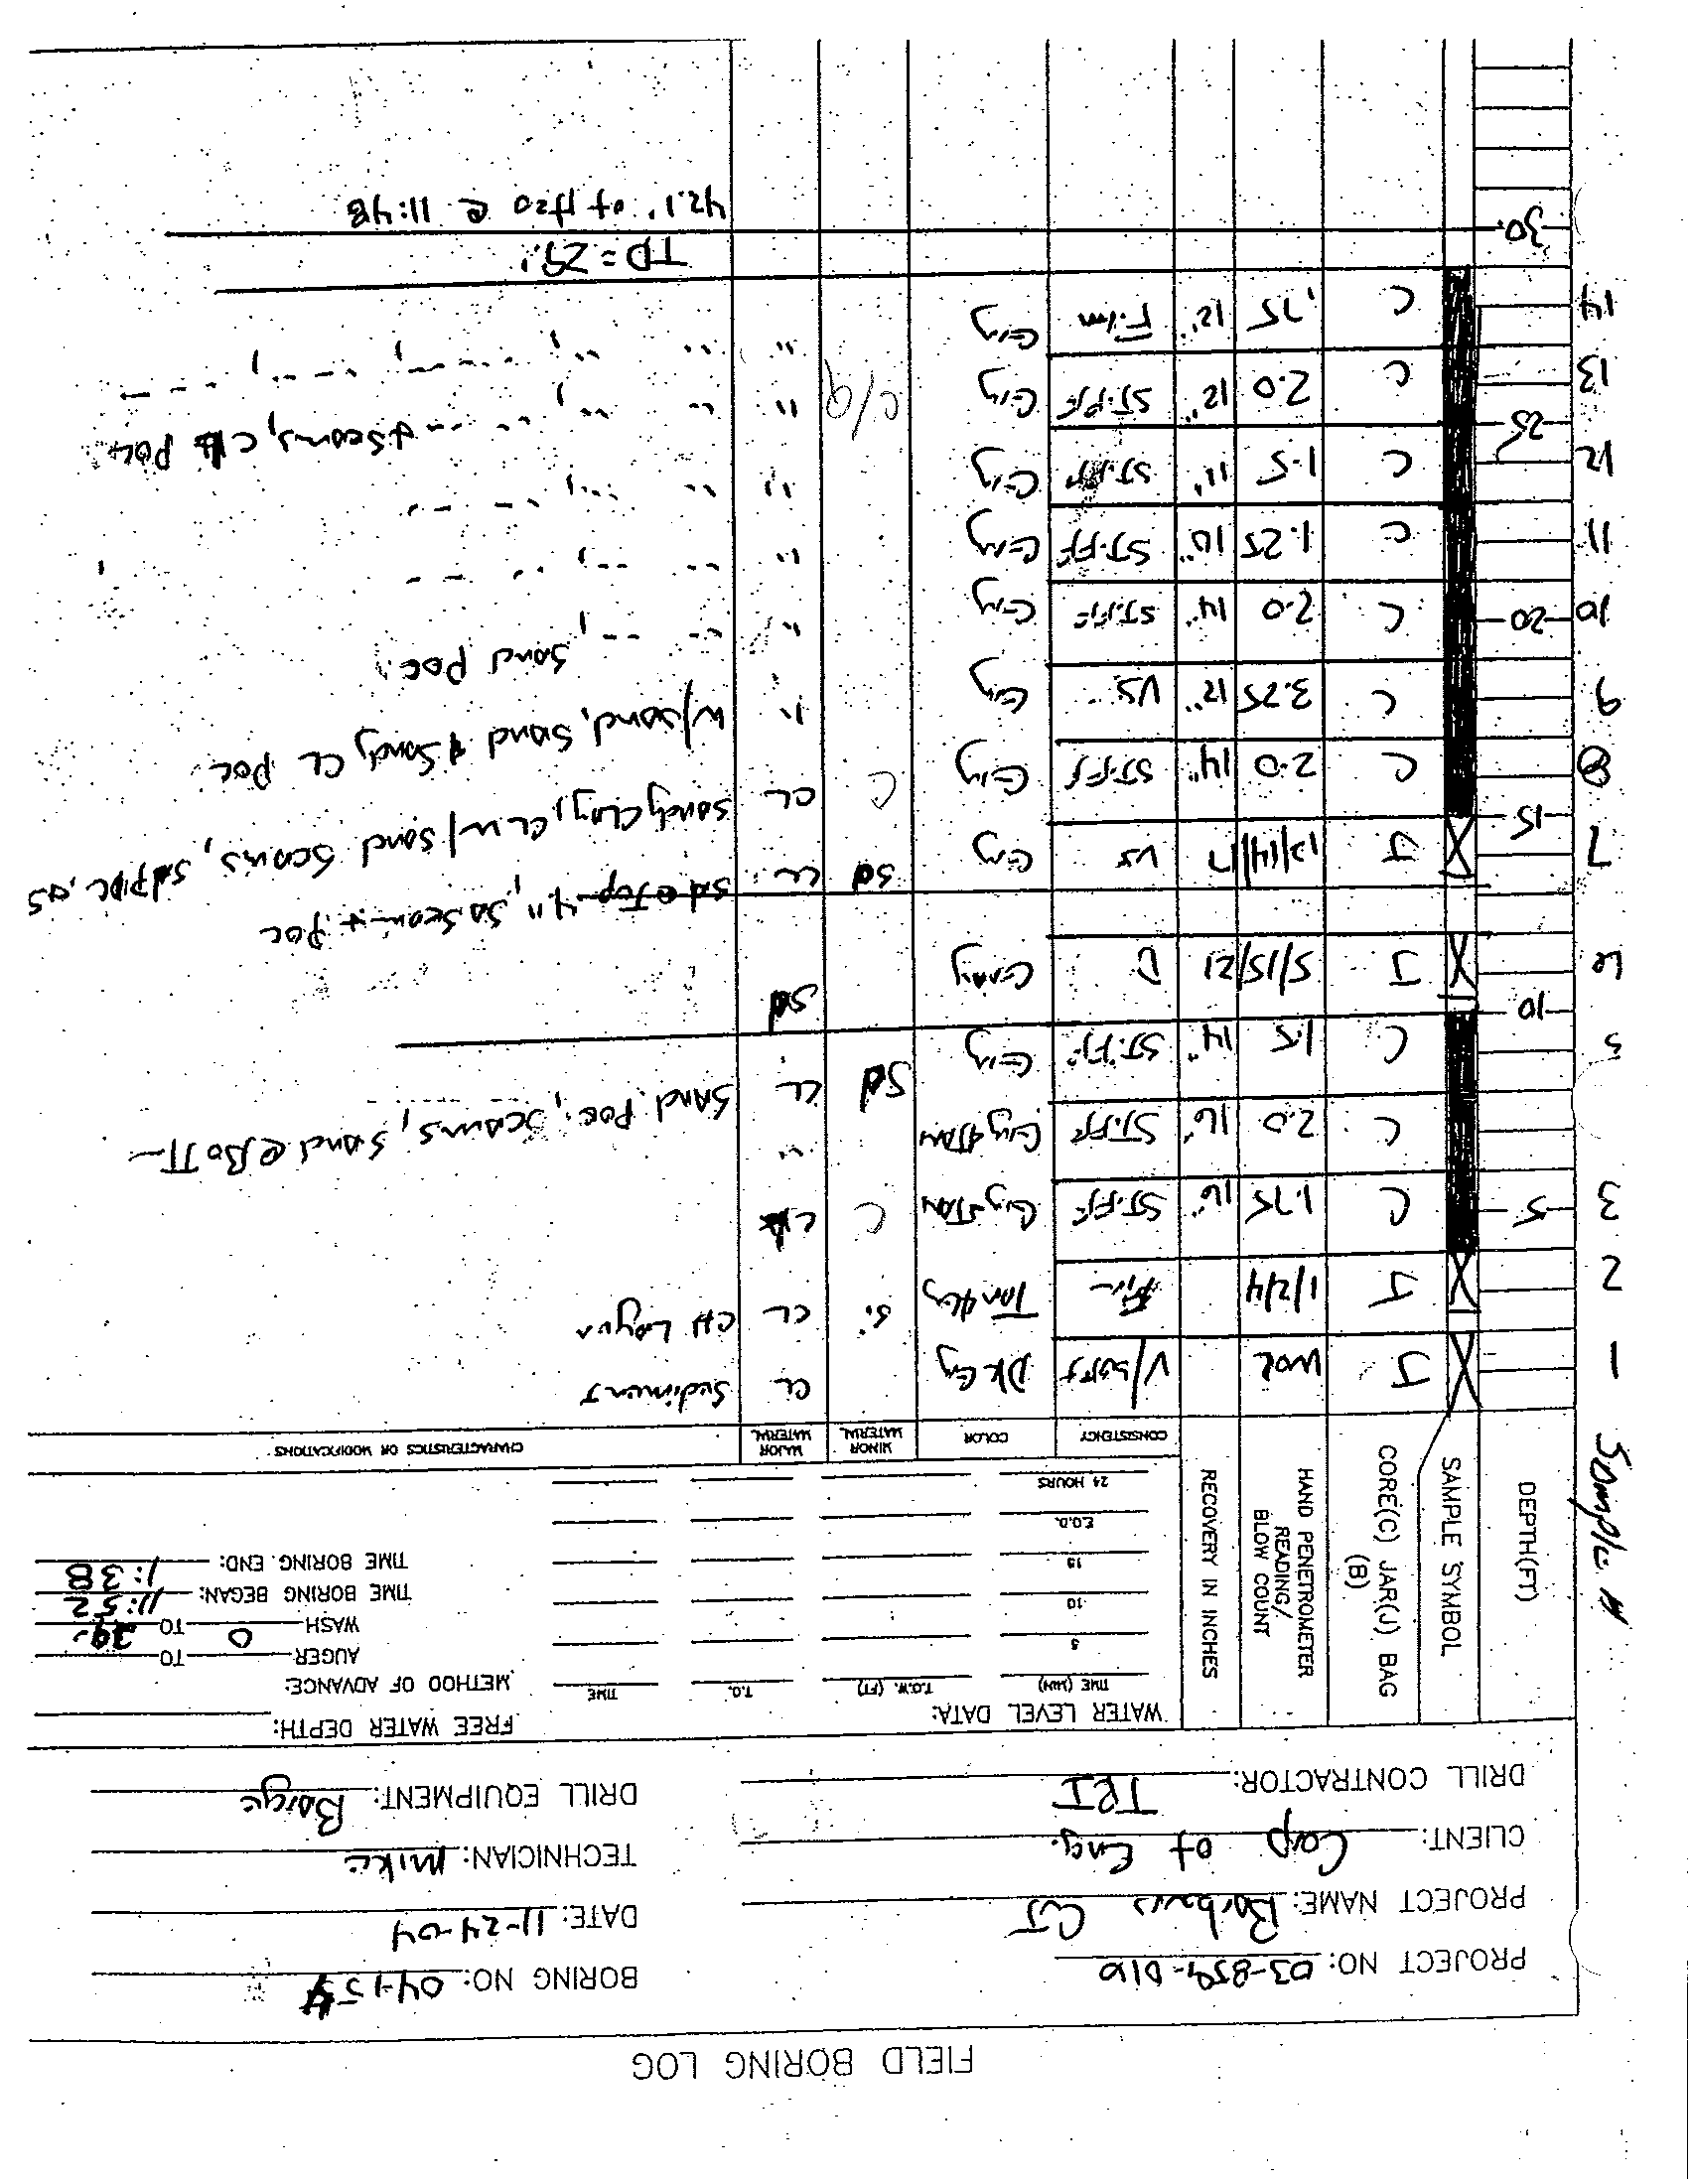 FIELD BORING LOG
PROJECT NO: 03-859-010 BORING NO: 04-15
PROJECT NAME: Barbours Cut DATE: 11-24-04
CLIENT: Corp of Eng. TECHNICIAN: Mike
DRILL CONTRACTOR: DRILL EQUIPMENT: Barge
WATER LEVEL DATA: FREE WATER DEPTH:
TIME (MIN) T.O.W. (FT) T.O. TIME METHOD OF ADVANCE:
5 AUGER TO
10 WASH 0 TO 29.
15 TIME BORING BEGAN: 11:52
E.O.D. TIME BORING END: 1:38
24 HOURS
Sample # DEPTH(FT) SAMPLE SYMBOL CORE(C) JAR(J) BAG (B) HAND PENETROMETER READING/ BLOW COUNT RECOVERY IN INCHES CONSISTENCY COLOR MINOR MATERIAL MAJOR MATERIAL CHARACTERISTICS OR MODIFICATIONS
1 J WOR V/soft DK Gry CL Sediment
2 J 1/2/4 Firm Tan & Gry Si CL CH Layer
3 5 C 1.75 16" STIFF Gry & TAN C
C 2.0 16" STIFF Gry & TAN "
5 C 1.5 14" STIFF Gry Sd CL SAND Poc, Seams, Sand @ BoTT
10
6 J 5/15/21 D Gray Sd
7 J 13/14/17 VS Gry Sd CL Sd @ Top 4", Sd Seam + Poc
15
8 C 2.0 14" STIFF Gry C CL Sandy Clay, CL w/ Sand Seams, Sd Poc,
9 C 3.25 12" VS Gry " w/ Sand, Sand & Sandy CL Poc
10 20 C 2.0 14" STIFF Gry " " ", Sand Poc
11 C 1.25 10" STIFF Gry " " "
12 C 1.5 11" STIFF Gry " " "
25
13 C 2.0 12" STIFF Gry " " " & Seams, CH Poc
14 C .75 12" Firm Gry " " "
TD = 29'
30 42.1' of H20 @ 11:48